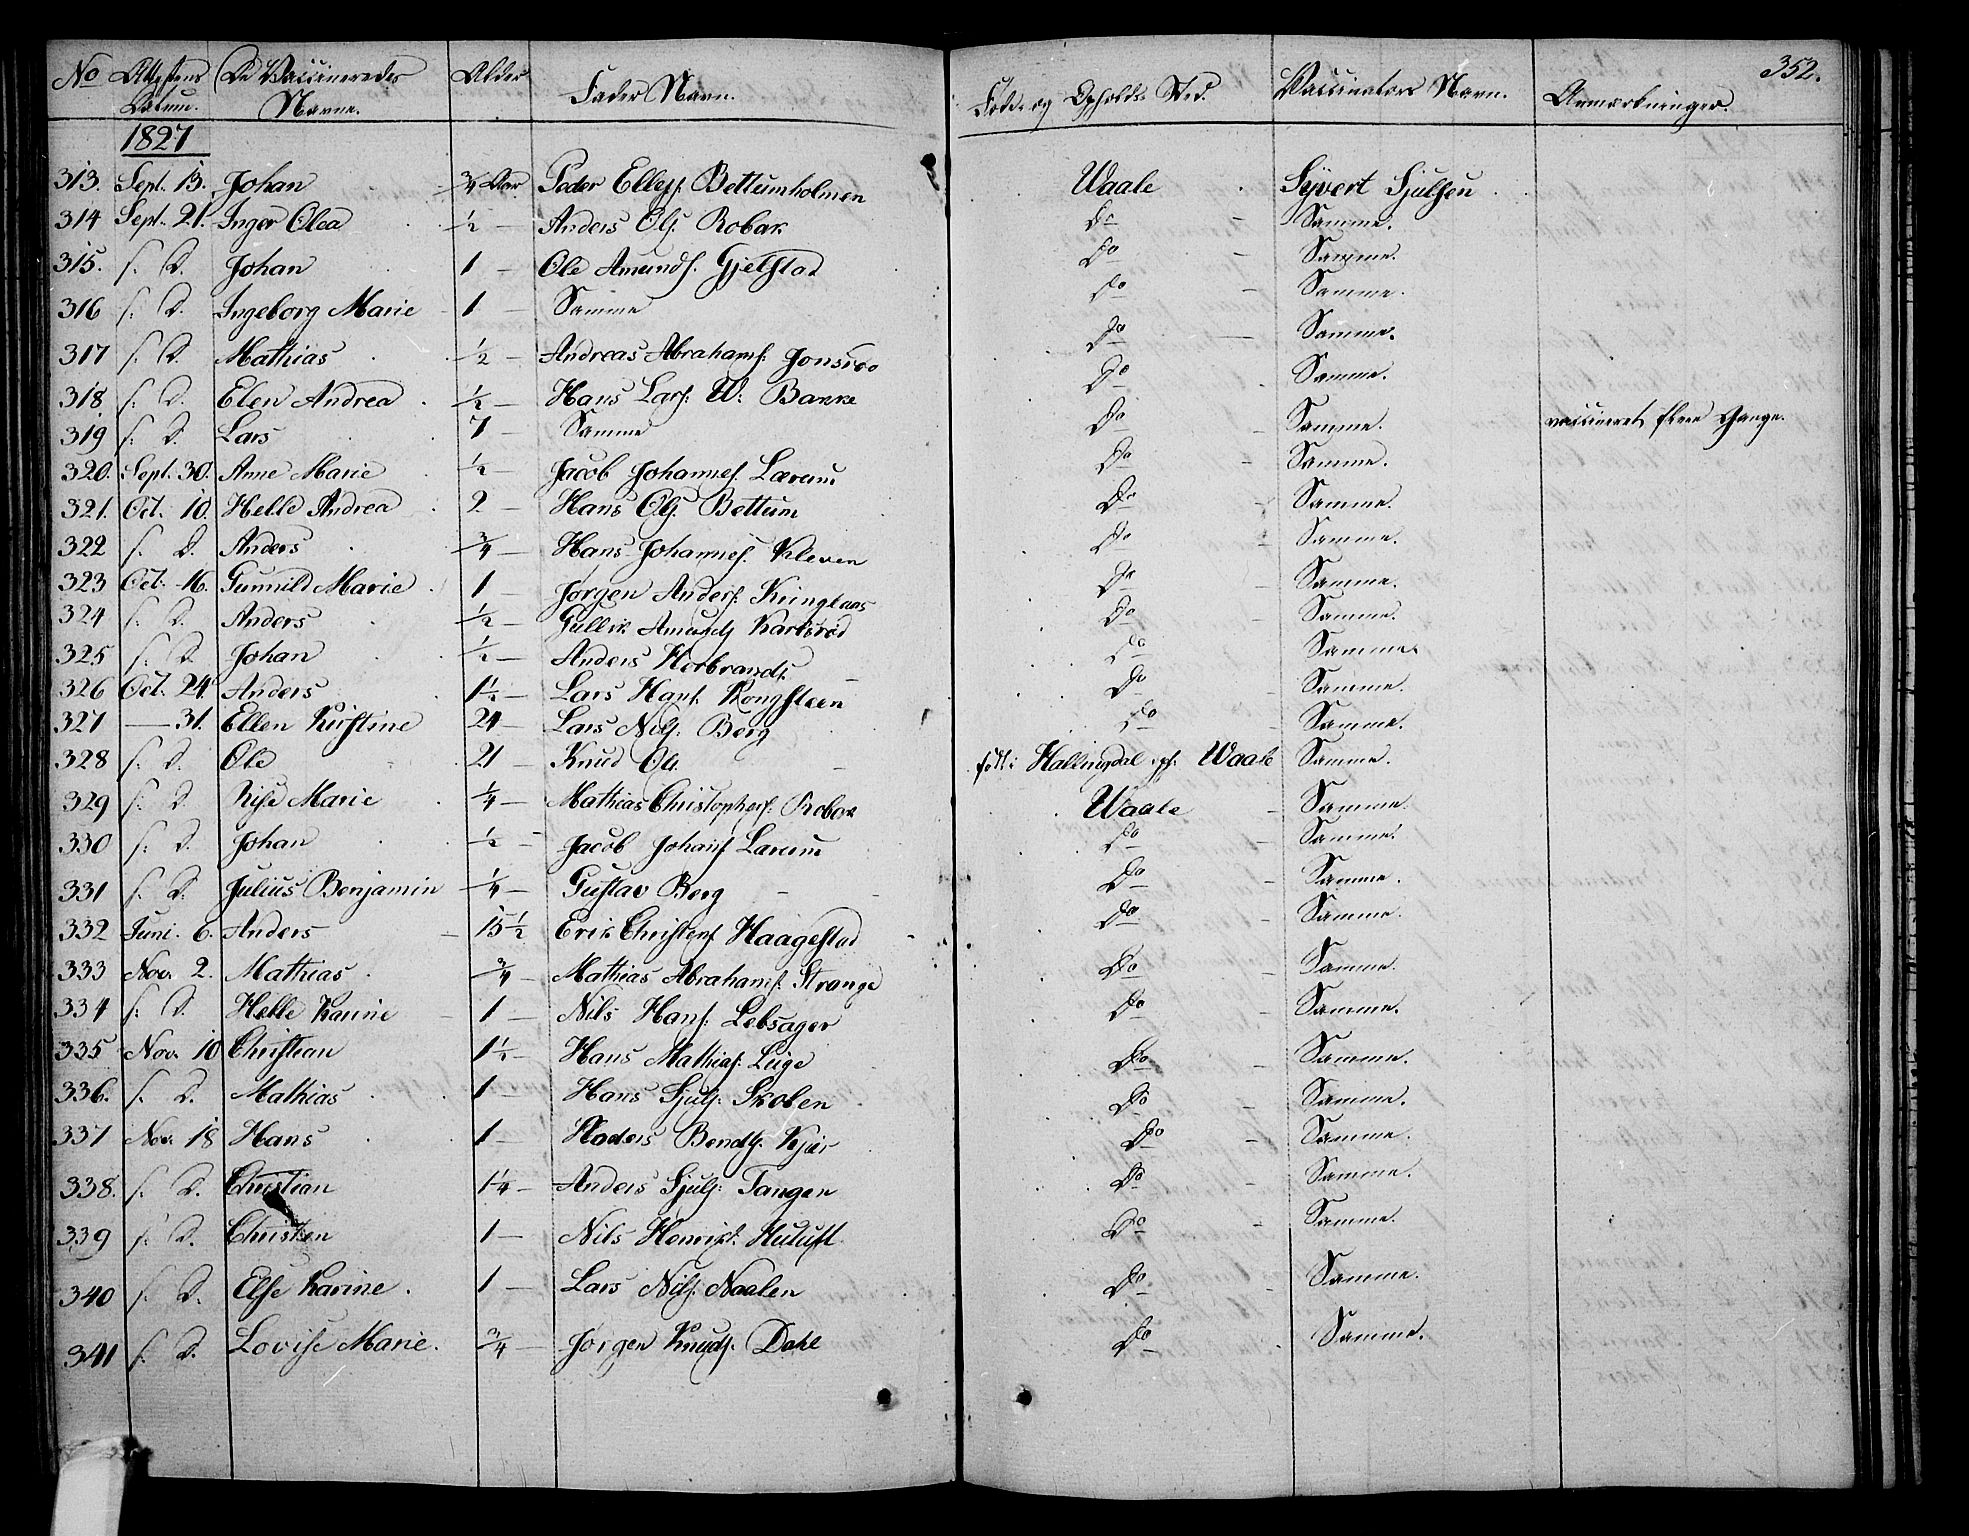 No Attestens Datum. De Vaccineredes Navne. Alder Fader Navn. Føde og Opholds Sted. Vaccinators Navn. Anmærkninger. 352.
1827
313. Sept. 13. Johan 3/4 Aar. Peder Ellefs. Bettumholmen Waale Syvert Sjulsen
314 Sept. 21. Inger Olea 1/2 — Anders Ols. Robak Do Samme.
315. s. D. Johan 1 — Ole Amunds. Gjelstad Do Samme.
316 s. D. Ingeborg Marie 1 — Samme Do Samme.
317 s. D. Mathias 1/2 — Andreas Abrahams. Do Samme.
318 s. D. Elen Andrea 1/2 — Hans Lars. W: Bakke Do Samme.
319 s. D. Lars 7 — Samme Do Samme. vaccineret flere Gange.
320. Sept. 30. Anne Marie 1/2 — Jacob Johannes. Lærum Do Samme.
321. Oct. 10. Helle Andrea 2 — Hans Ols. Bettum Do Samme.
322 s. D. Anders 3/4 — Hans Johannes. Kleven Do Samme.
323 Oct. 16. Gunnild Marie 1 — Jørgen Anders. Kringlaas Do Samme.
324 s. D. Anders 1/2 — Gullik Amunds Karlsrød Do Samme.
325 s. D. Johan 1/2 — Anders Herbrands. Do Samme.
326 Oct. 24. Anders 1 1/2 — Lars Hans. Kongsteen Do Samme.
327 — 31. Ellen Kirstine 24 — Lars Nils. Berg Do Samme.
328 s. D. Ole 21 — Knud Ols. født i Hallingdal opf. Waale Samme.
329 s. D. Marie 1/4 — Mathias Christophers. Robak Waale Samme.
330 s. D. Johan 1/2 — Jacob Johans Lærum Do Samme.
331 s. D. Julius Benjamin 1/4 — Gustav Berg Do Samme.
332 Juni. 6. Anders 15 1/2 Erik Christens Haagestad Do Samme.
333 Nov. 2. Mathias 3/4 — Mathias Abrahams. Strange Do Samme.
334 s. D. Helle Karine 1 — Nils Hans. Lebsager Do Samme.
335 Nov. 10 Christian 1 1/2 — Hans Mathias. Leige Do Samme.
336. s. D. Mathias 1 — Hans Sjuls. Skolen Do Samme.
337 Nov. 18 Hans 1 — Anders Bendts. Kjær Do Samme.
338. s. D. Christian 1 1/4 — Anders Sjuls. Tangen Do Samme.
339 s. D. Christen 1 — Nils Henriks. Do Samme.
340 s. D. Else Karine. 1 — Lars Nils. Naalen Do Samme.
341 s. D. Lovise Marie. 3/4 — Jørgen Knuds. Dahl Do Samme.